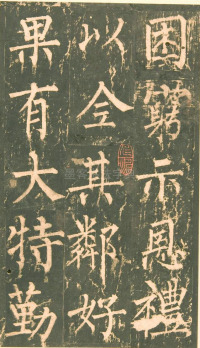 困窮示恩禮
以全其鄰好
果有大特勤